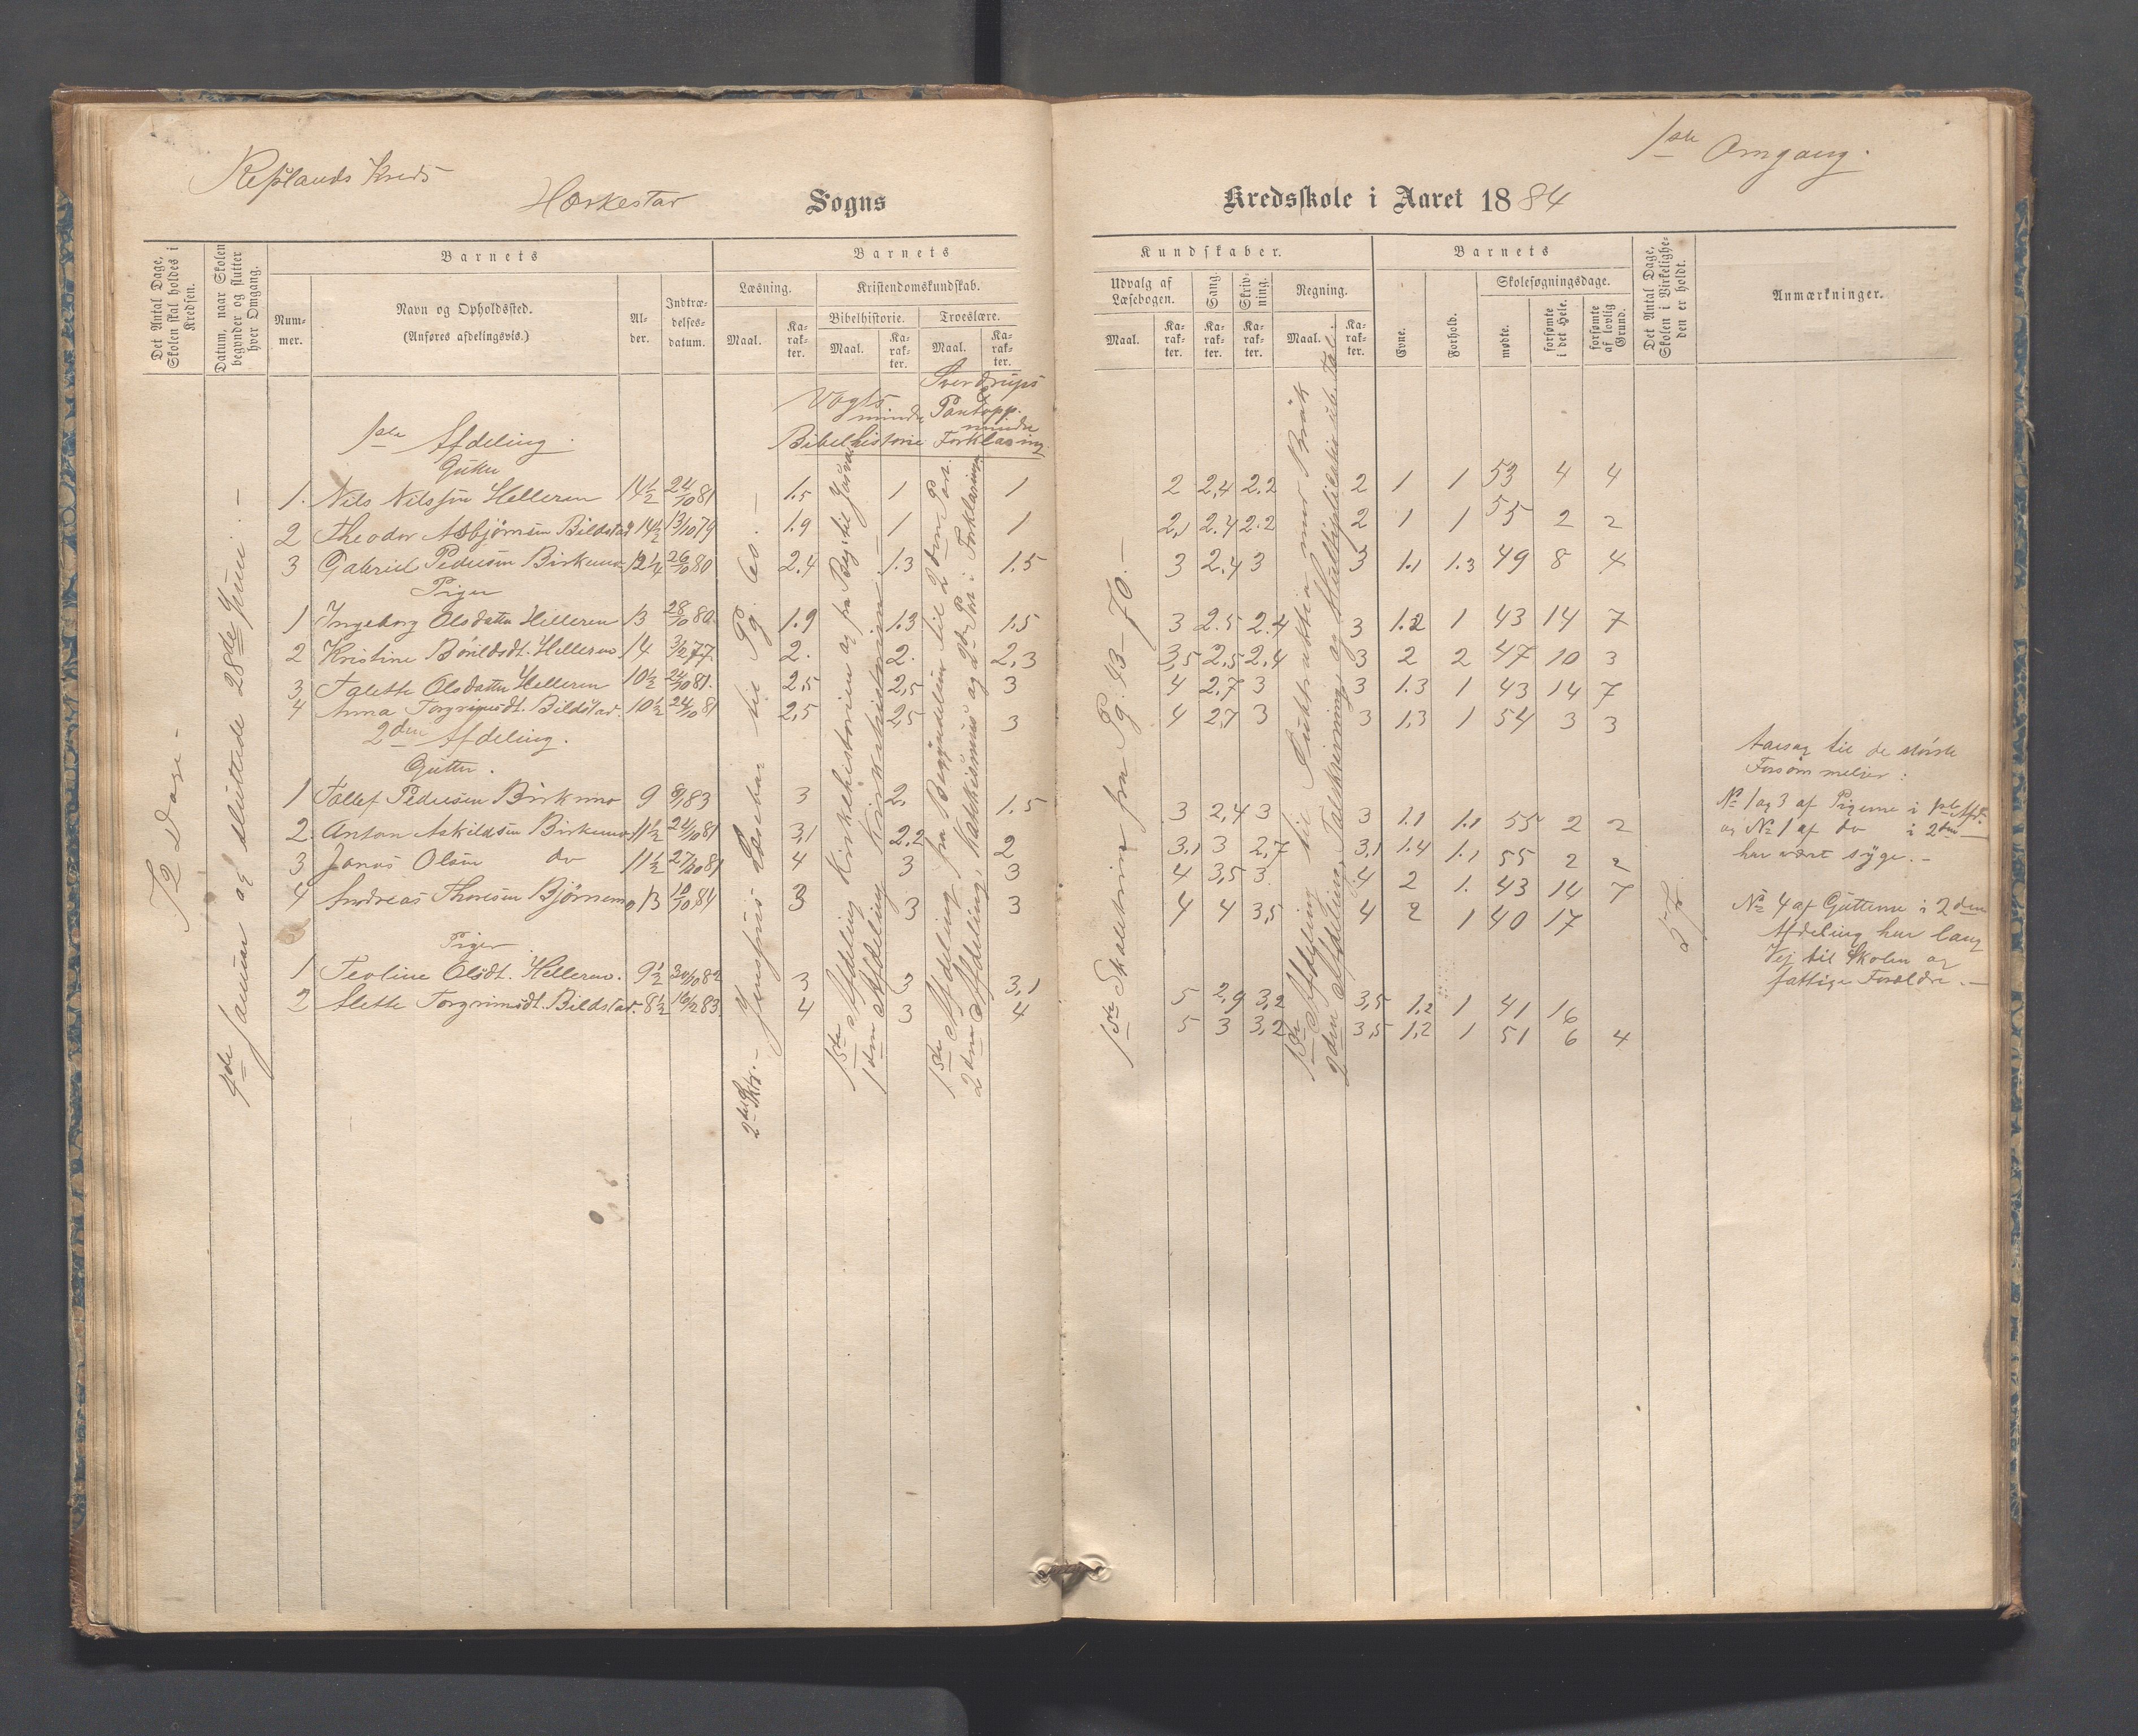 Refslands Kreds
Hæskestad Sogns
Kredsskole i Aaret 1884
1ste Omgang.
Det Antal Dage, Skolen skal holdes i Kredsen.
Datum, naar Skolen begynder og slutter hver Omgang.
Barnets
Nummer.
Navn og Opholdssted.
(Anføres afdelingsvis.)
Alder.
Indtrædelsesdatum.
Barnets
Læsning.
Maal.
Karakter.
Kristendomskundskab.
Bibelhistorie.
Maal.
Karakter.
Troeslære.
Maal.
Karakter.
Kundskaber.
Udvalg af Læsebogen.
Maal.
Karakter.
Sang.
Karakter.
Skrivning.
Karakter.
Regning.
Maal.
Karakter.
Barnets
Evne.
Forhold.
Skolesøgningsdage.
mødte.
forsømte i det Hele.
forsømte af lovlig Grund.
Det Antal Dage, Skolen i Virkeligheden er holdt.
Anmærkninger.
72 Dage -
Januar og sluttede 28de Juni. -
Vogts mindre Bibelhistorie
Sverdrups & Pontopp. mindre Forklaring
1ste Afdeling.
Gutter
1. Nils Nilssen Helleren 14½ 24/10 81 1.5 1 1 2 2,4 2.2 2 1 1 53 4 4
2 Theodor Asbjørnsen Bildstad 14½ 13/10 79 1.9 1 1 2,1 2.4 2.2 2 1 1 55 2 2
3 Gabriel Pedersen Birkemo 12¼ 26/10 80 2.4 1.3 1.5 3 2.4 3 3 1.1 1.3 49 8 4
Piger
1 Ingeborg Olsdatter Helleren 13 28/10 80. 1.9 1.3 1.5 3 2.5 2.4 3 1.2 1 43 14 7
2 Kristine Bårildsdt. Helleren 14 3/12 77. 2. 2. 2,3 3,5 2,5 2,4 3 2 2 47 10 3
3 Talette Olsdatter Helleren 10½ 24/10 81. 2,5 2,5 3 4 2,7 3 3 1.3 1 43 14 7
4 Anna Torgrimsdt. Bildstad. 10½ 24/10 81 2,5 2,5 3 4 2,7 3 3 1,3 1 54 3 3
2den Afdeling.
Gutter.
1 Tallef Pedersen Birkemo 9 8/1 83 3 2. 1.5 3 2,4 3 3 1.1 1.1 55 2 2
2. Anton Askildsen Birkemo. 11½ 24/10 81 3,1 2.2 2 3,1 3 2,7 3,1 1.4 1.1 55 2 2
3 Jonas Olsen do 11½ 27/10 81 4 3 3 4 3,5 3. 4 2 1. 43 14 7
4 Andreas Thoresen Bjørnemo 13 10/10 84 3 3 3 4 4 3,5 4 2 1 40 17
Piger
1 Teoline Olsdt. Helleren. 9½ 30/10 82 3 3 3,1 5 2,9 3,2 3,5 1,2 1 41 16
2 Alette Torgrimsdt. Bildstad. 8½ 16/12 83. 4 3 4 5 3 3,2 3,5 1,2 1 51 6 4
Jensens Læsebog til Pg. 60. -
1ste Afdeling Kirkehistorien og fra Beg. til
1ste Afdeling fra Begyndelsen til 2den Part.
2den Afdeling, Katekismus og 2den Part i Forklaringen
1ste Skoletrin fra Pg. 43-70. -
1ste Afdeling til med Brøk
2den Afdeling, Talskrivning og Multiplikation
Aarsag til de største
Forsømmelser:
No 1 og 3 af Pigerne i 1ste Afd.
og No 1 af do i 2den
har været syge. -
No 4 af Gutterne i 2den
Afdeling har lang
Vej til Skolen og
fattige Forældre. -
57.